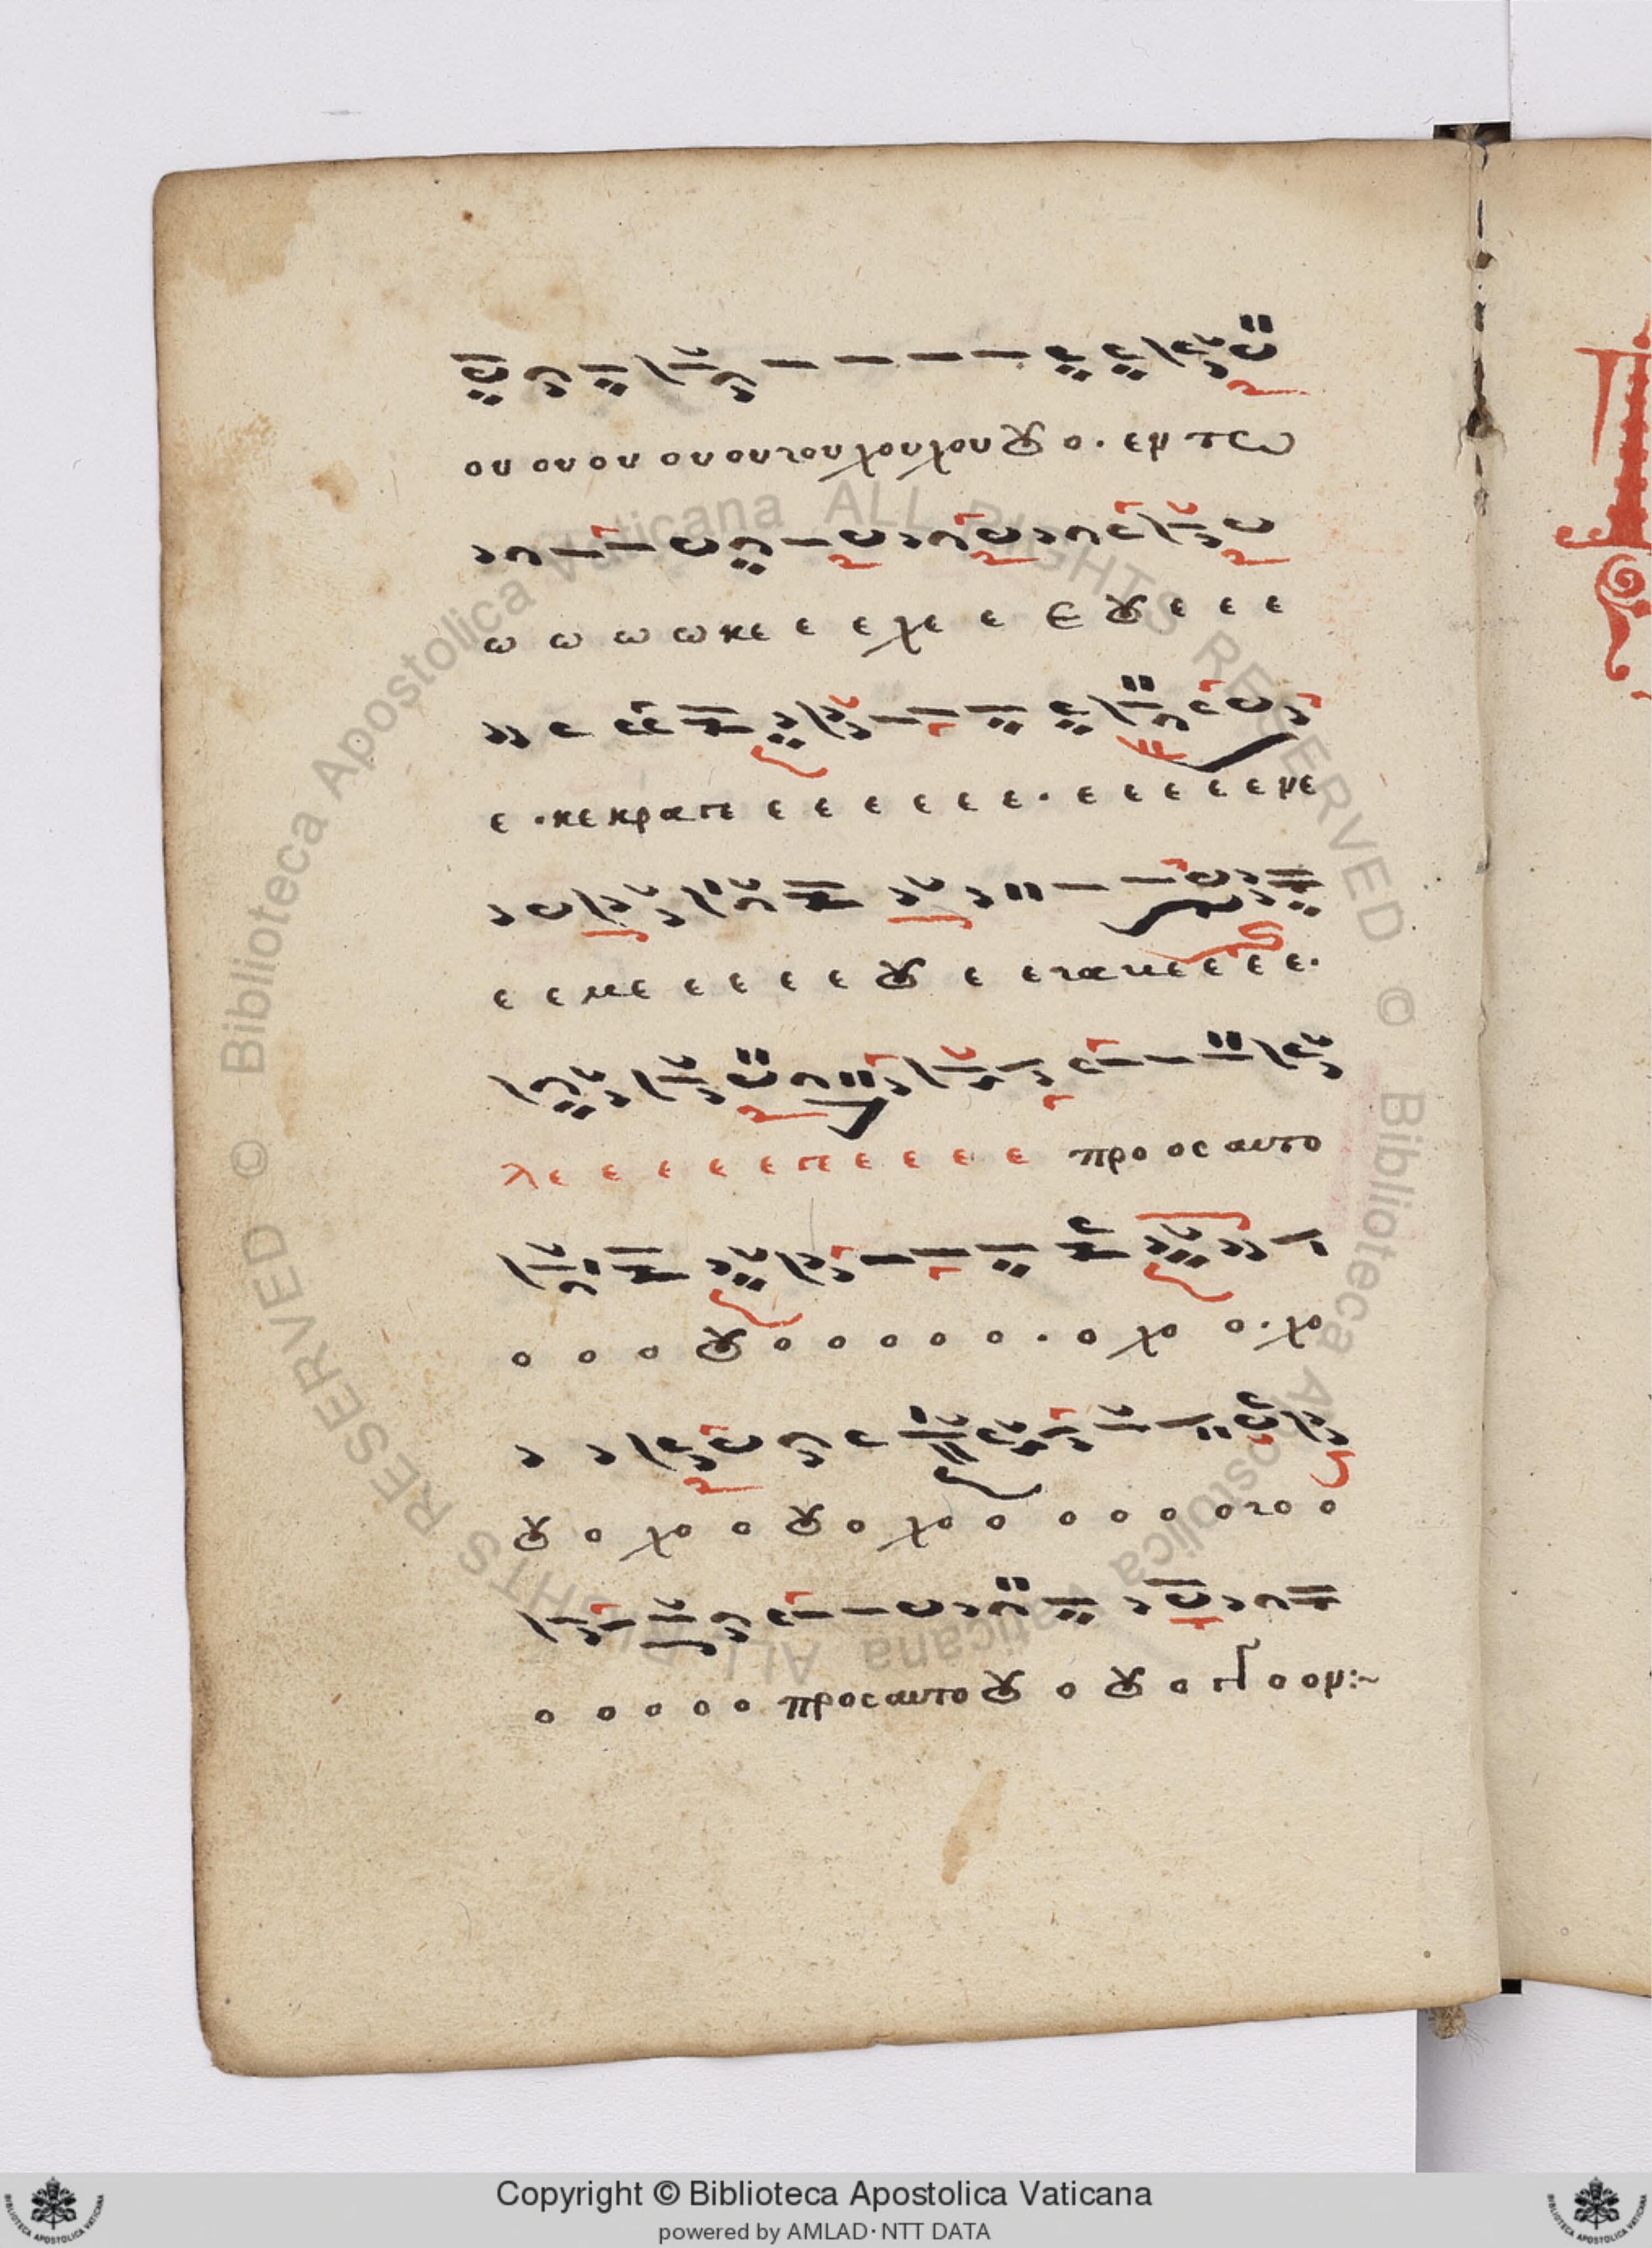 ου ου ου ου ου του χου χου ȣ ο · εν τω
ω ω ω ω κε ε ε χε ε ε ȣ ε ε ε
ε · κεκραγε ε ε ε ε ε ε · ε ε ε ε ε με
ε ε με ε ε ε ε ȣ ε ε ε ε ε ·
λε ε ε ε ε γε ε ε ε ε προ ος αυτο
ο ο ο ȣ ο ο ο ο ο · ο χο ο · χο
ȣ ο χο ο ȣ ο χο ο ο ο ο ο το ο
ο ο ο ο ο προς αυτο ȣ ο ȣ ο ο ον :~
Biblioteca Apostolica Vaticana ALL RIGHTS RESERVED ©
Biblioteca Apostolica Vaticana ALL RIGHTS RESERVED ©
Copyright © Biblioteca Apostolica Vaticana
powered by AMLAD·NTT DATA